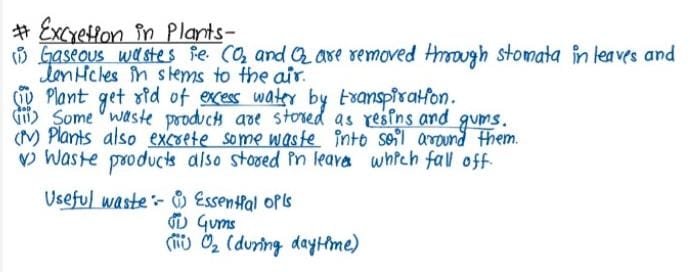 # Excretion in Plants-
(i) Gaseous wastes ie. CO₂ and O₂ are removed through stomata in leaves and
lenticles in stems to the air.
(ii) Plant get rid of excess water by transpiration.
(iii) Some waste products are stored as resins and gums.
(iv) Plants also excrete some waste into soil around them.
v) Waste products also stored in leave which fall off.
Useful waste :- (i) Essential oils
(ii) Gums
(iii) O₂ (during daytime)